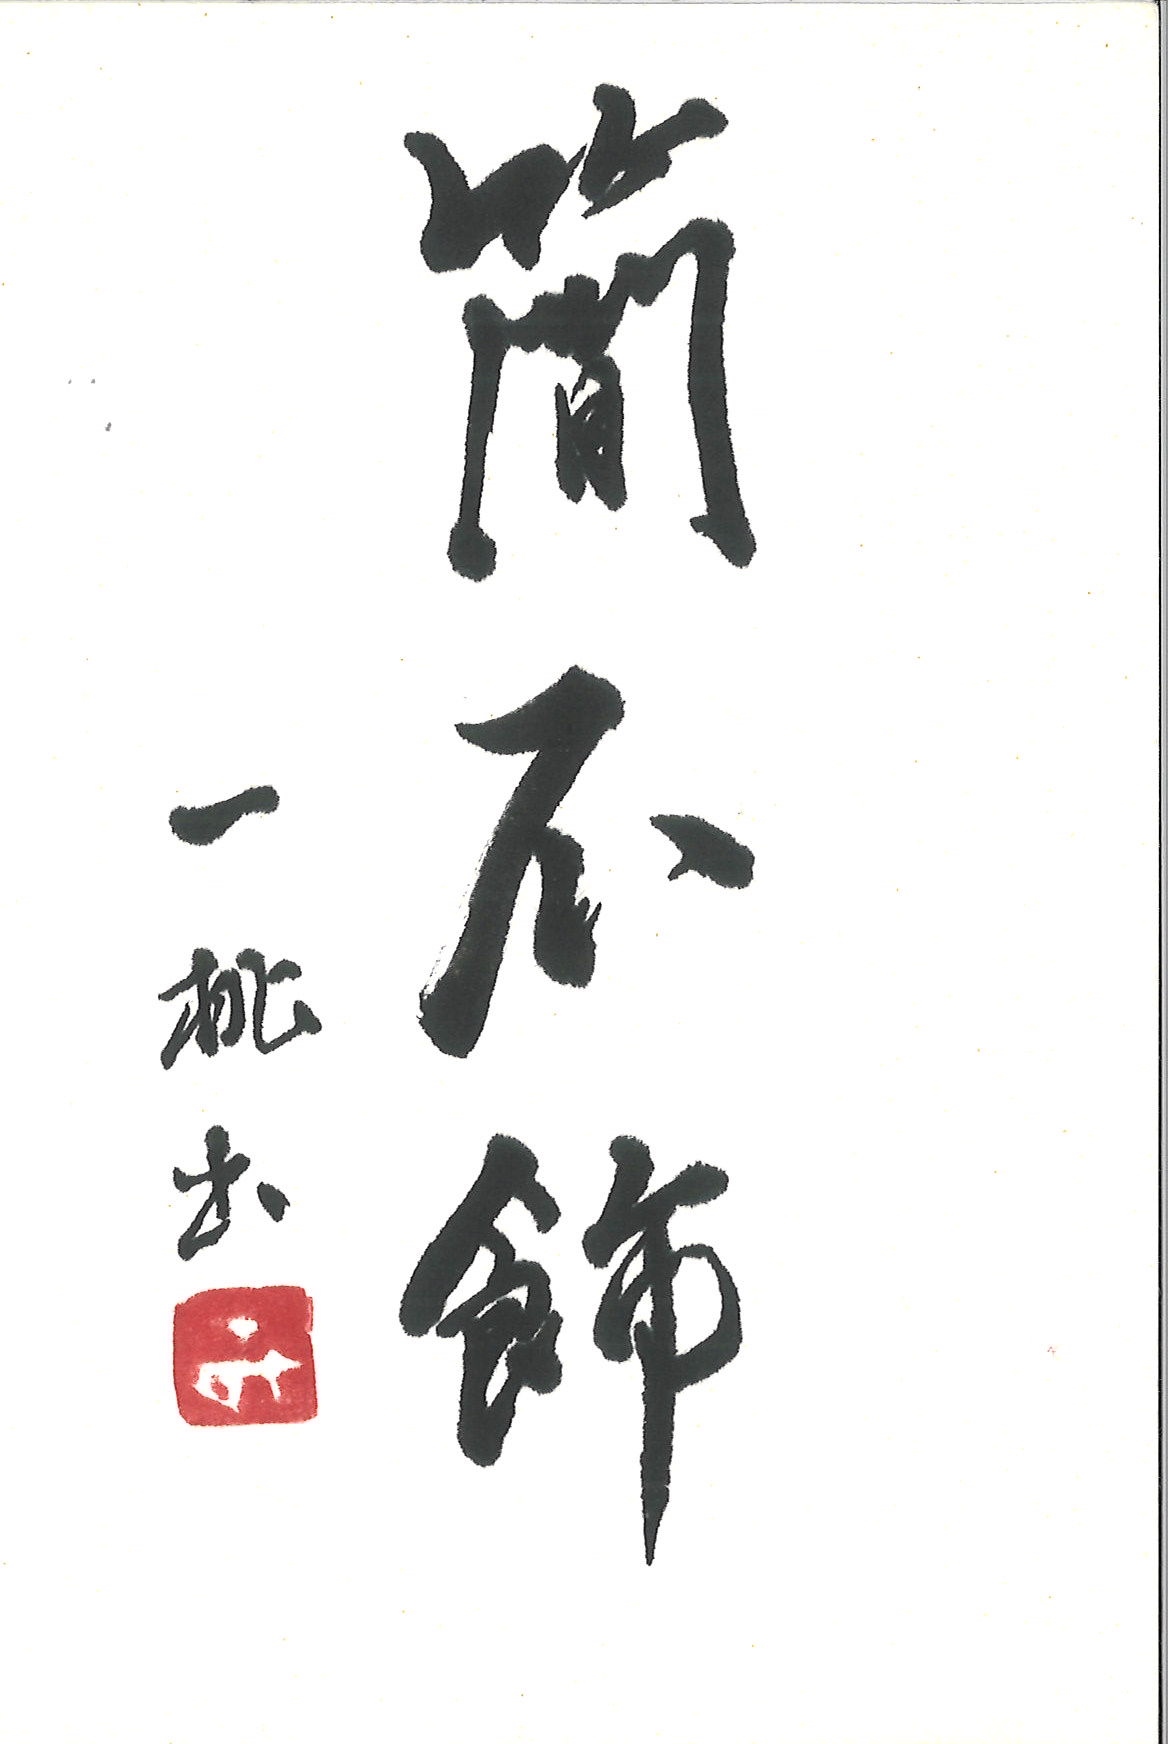 簡不飾
一桃书